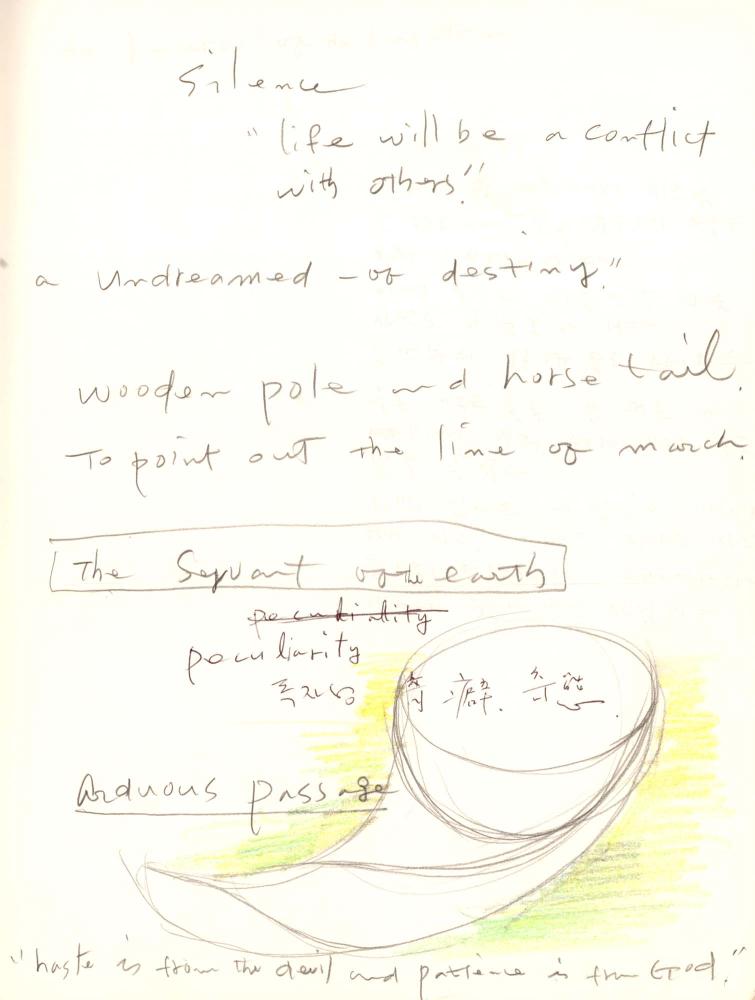 Silence
"life will be a conflict
with others."
a undreamed-of destiny."
wooden pole and horse tail.
To point out the line of march.
The Servant of the earth
peculiarity
독자성
Arduous passage
"haste is from the devil and patience is from God."